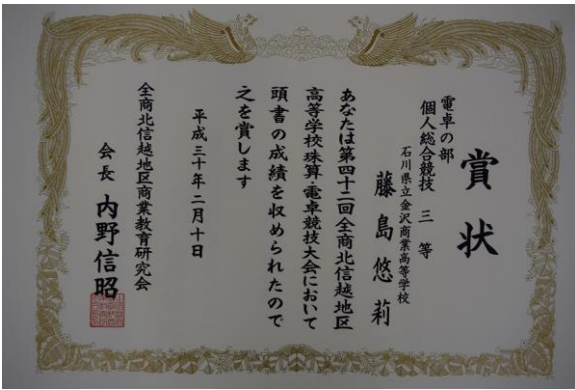 賞状
電卓の部
個人総合競技 三等
石川県立金沢商業高等学校
藤島悠莉
あなたは第四十二回全商北信越地区
高等学校珠算・電卓競技大会において
頭書の成績を収められたので
之を賞します
平成三十年二月十日
全商北信越地区商業教育研究会
会長 内野信昭